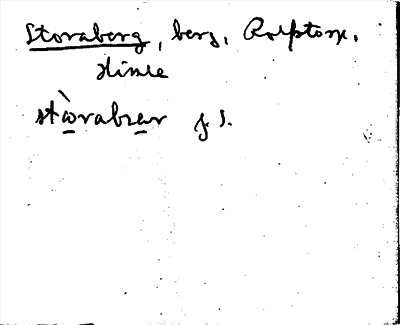 Storaberg, berg, Rolfstorp,
Himle
stòrabrær f. s.